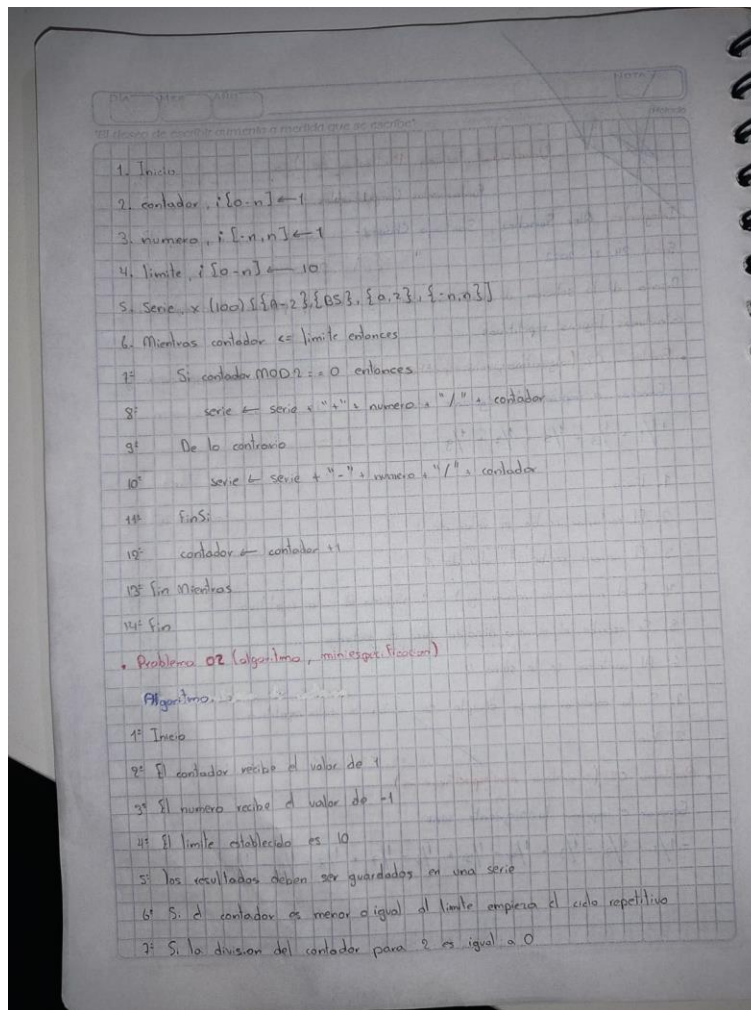 DIA MES AÑO NOTA
"El deseo de escribir aumenta a medida que se escribe"
1. Inicio
2. contador, i [0-n] ← 1
3. numero, i [-n,n] ← 1
4. limite, i [0-n] ← 10
5. Serie, x (100) [{A-Z},{BS},{a,z},{-n,n}]
6. Mientras contador <= limite entonces
7º Si contador MOD 2 == 0 entonces
8º serie ← serie + "+" + numero + "/" + contador
9º De lo contrario
10º serie ← serie + "-" + numero + "/" + contador
11º FinSi
12º contador ← contador +1
13º fin Mientras
14º fin
• Problema 02 (algoritmo,
Algoritmo.
1º Inicio
2º El contador recibe el valor de 1
3º El numero recibe el valor de -1
4º El limite establecido es 10
5º los resultados deben ser guardados en una serie
6º Si el contador es menor o igual al limite empieza el ciclo repetitivo
7º Si la division del contador para 2 es igual a 0